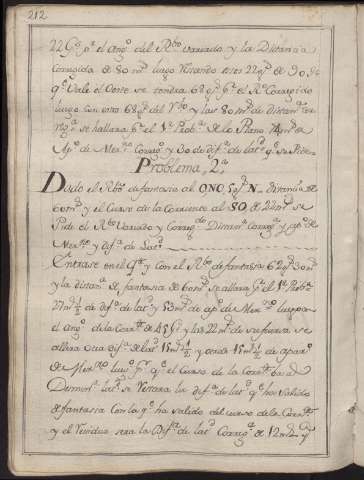 212
22 G.s p.r el Ang.o del R.bo Variado y la Distancia
Corregida de 80 m.s luego Restando estos 22 g.s de 90 g.s
q.e Vale el Oeste se tendra 68 g.s p.r el R.bo Corregido
luego con estos 68 g.s del R.bo y las 80 m.s de distan.a
se hallara p.r el 1.o Prob.a de lo Plano 74 m.s de
Ap.o de Mer.no Correg.o y 30 de dif.a de lat.d q.e se Pide
Problema 2.a
Dado el R.bo de fantasia al ONO 5 g.s N. distancia de
60 m.s y el Curso de la Corriente al SO. de 22 m.s se
Pide el R.bo Variado y Correg.do Distan.a Correg.a y ap.o de
Mer.no y dif.a de lat.d
Entrase en el Q.te y con el R.bo de fantasia 62 g.s 30 m.s
y la distan.a de fantasia de 60 m.s se allara p.r el 1.o Prob.a
27 m.s 1/2 de dif.a de lat.d y 53 m.s de ap.o de Mer.no luego p.r
el Ang.o de la Corr.te de 45 g.s y las 22 m.s de su fuerza se
allara otra dif.a de lat.d 15 m.s 1/2 y otras 15 m.s 1/2 de apar.o
de Mer.no luego p.r q.e el Curso de la Corr.te ba a
Desmin.r lat.d se Restara la dif.a de lat.d q.e ha Salido
de fantasia con la q.e ha salido del curso de la Corr.te
y el Residuo sera la Dif.a de lat.d Correg.a de 12 m.s y